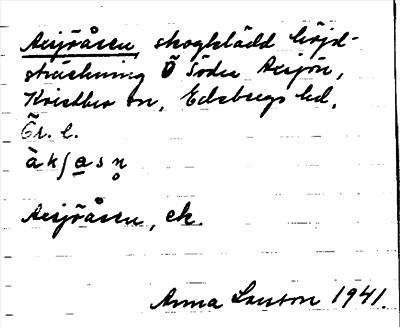 Axsjöåsen, skogklädd höjd-
sträckning Ö Söder Axsjön,
Kvistbro sn, Edsbergs hd,
Ör. l.
àkʃa̲sn̥
Axsjöåsen, ek.
Anna Larsson 1941.